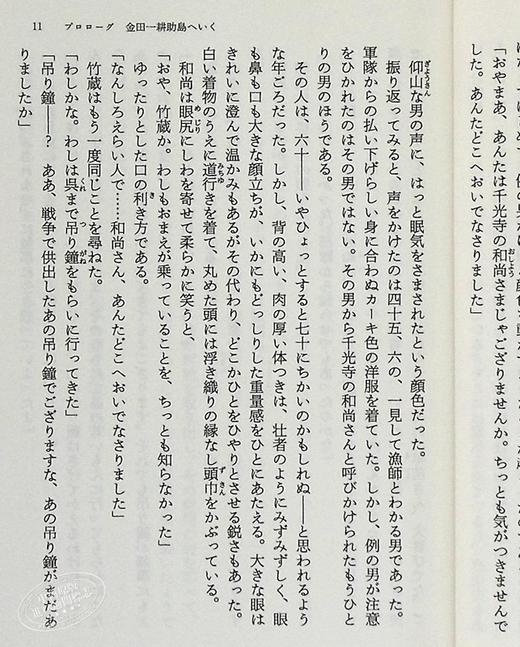 11　プロローグ　金田一耕助島へいく
した。あんたどこへおいでなさりました」
「おやまあ、あんたは千光寺の和尚さまじゃござりませんか。ちっとも気がつきませんで
仰山な男の声に、はっと眠気をさまされたという顔色だった。
振り返ってみると、声をかけたのは四十五、六の、一見して漁師とわかる男であった。
軍隊からの払い下げらしい身に合わぬカーキ色の洋服を着ていた。しかし、例の男が注意
をひかれたのはその男ではない。その男から千光寺の和尚さんと呼びかけられたもうひと
りの男のほうである。
その人は、六十――いやひょっとすると七十にちかいのかもしれぬ――と思われるよう
な年ごろだった。しかし、背の高い、肉の厚い体つきは、壮者のようにみずみずしく、眼
も鼻も口も大きな顔立ちが、いかにもどっしりした重量感をひとにあたえる。大きな眼は
きれいに澄んで温かみもあるがその代わり、どこかひとをひやりとさせる鋭さもあった。
白い着物のうえに道行きを着て、丸めた頭には浮き織りの縁なし頭巾をかぶっている。
和尚は眼尻にしわを寄せて柔らかに笑うと、
「おや、竹蔵か。わしもおまえが乗っていることを、ちっとも知らなかった」
ゆったりとした口の利き方である。
「なんしろえらい人で……和尚さん、あんたどこへおいでなさりました」
竹蔵はもう一度同じことを尋ねた。
「わしかな。わしは呉まで吊り鐘をもらいに行ってきた」
「吊り鐘――？　ああ、戦争で供出したあの吊り鐘でござりますな、あの吊り鐘がまだあ
りましたか」